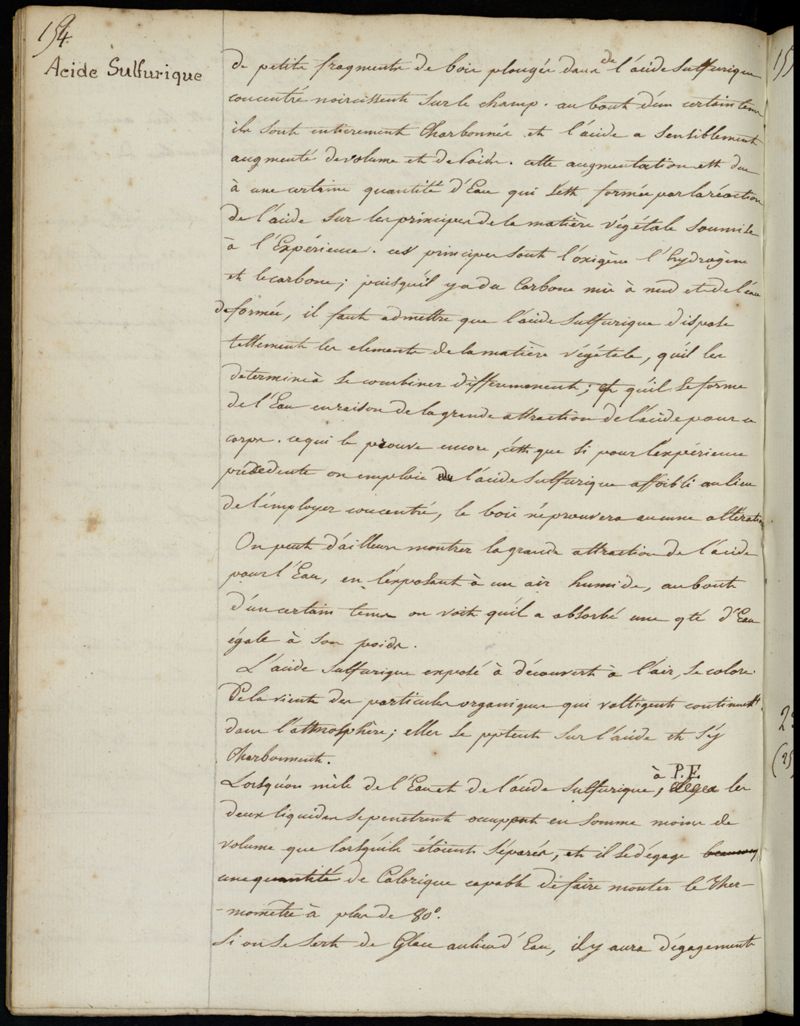 154.
Acide Sulfurique
de petits fragments de bois plongés dans de l'acide Sulfurique
concentré noircissent sur le champ. au bout d'un certain tems
ils sont entierement Charbonnés et l'acide a sensiblement
augmenté de volume et de poids. cette augmentation est due
à une certaine quantité d'Eau qui s'est formée par la réaction
de l'acide sur les principes de la matière végétale soumise
à l'Expérience. ces principes sont l'oxigène l'hydrogène
et le carbone; puisqu'il y a du Carbone mis à nud et de l'eau
de formée, il faut admettre que l'acide Sulfurique dispose
tellement les elements de la matière végétale, qu'il les
determine à se combiner différemment; et qu'il se forme
de l'Eau en raison de la grande attraction de l'acide pour ce
corps. ce qui le prouve encore, c'est que si pour l'expérience
précédente on emploie de l'acide Sulfurique affoibli au lieu
de l'employer concentré, le bois n'éprouvera aucune altération
On peut d'ailleurs montrer la grande attraction de l'acide
pour l'Eau, en l'exposant à un air humide, au bout
d'un certain tems on voit qu'il a absorbé une qté d'Eau
égale à son poids.
L'acide Sulfurique exposé à découvert à l'air, se colore.
Cela vient des particules organiques qui voltigent continuelt
dans l'atmosphère; elles se pptent sur l'acide et s'y
Charbonnent.
Lorsqu'on mêle de l'Eau et de l'acide Sulfurique, à P.E. les
deux liquides se penetrent occupent en somme moins de
volume que lorsqu'ils étoient séparés, et il se dégage beaucoup
une quantité de Calorique capable de faire monter le Ther-
-mometre à plus de 80°.
Si on se sert de Glace au lieu d'Eau, il y aura dégagement